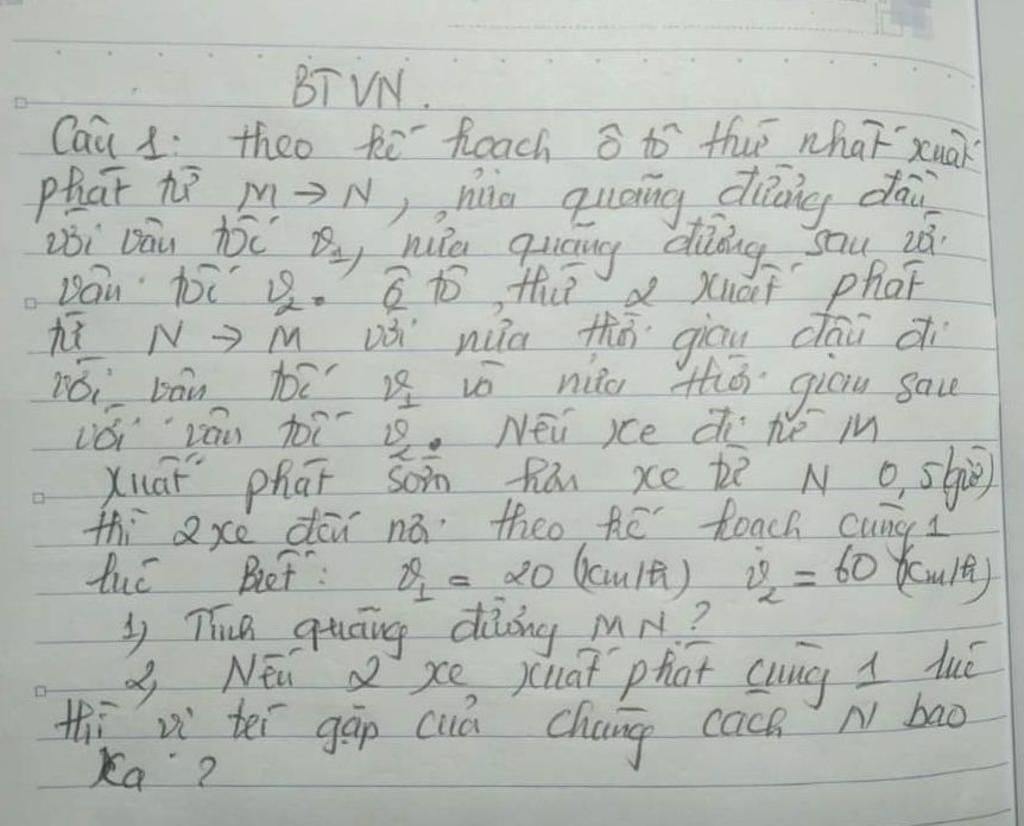 BTVN.
Câu 1: theo kế hoạch ô tô thứ nhất xuất
phát từ M → N, nửa quãng đường đầu
với vận tốc v₁, nửa quãng đường sau với
vận tốc v₂. Ô tô thứ 2 xuất phát
từ N → M với nửa thời gian đầu đi
với vận tốc v₁ và nửa thời gian sau
với vận tốc v₂. Nếu xe đi từ M
xuất phát sớm hơn xe từ N 0,5 (giờ)
thì 2 xe đến nơi theo kế hoạch cùng 1
lúc Biết: v₁ = 20 (km/h) v₂ = 60 (km/h)
1, Tính quãng đường MN?
2, Nếu 2 xe xuất phát cùng 1 lúc
thì vị trí gặp của chúng cách N bao
xa ?